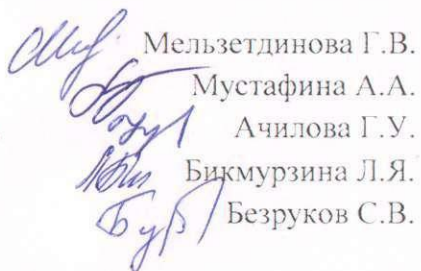 Мельзетдинова Г.В.
Мустафина А.А.
Ачилова Г.У.
Бикмурзина Л.Я.
Безруков С.В.